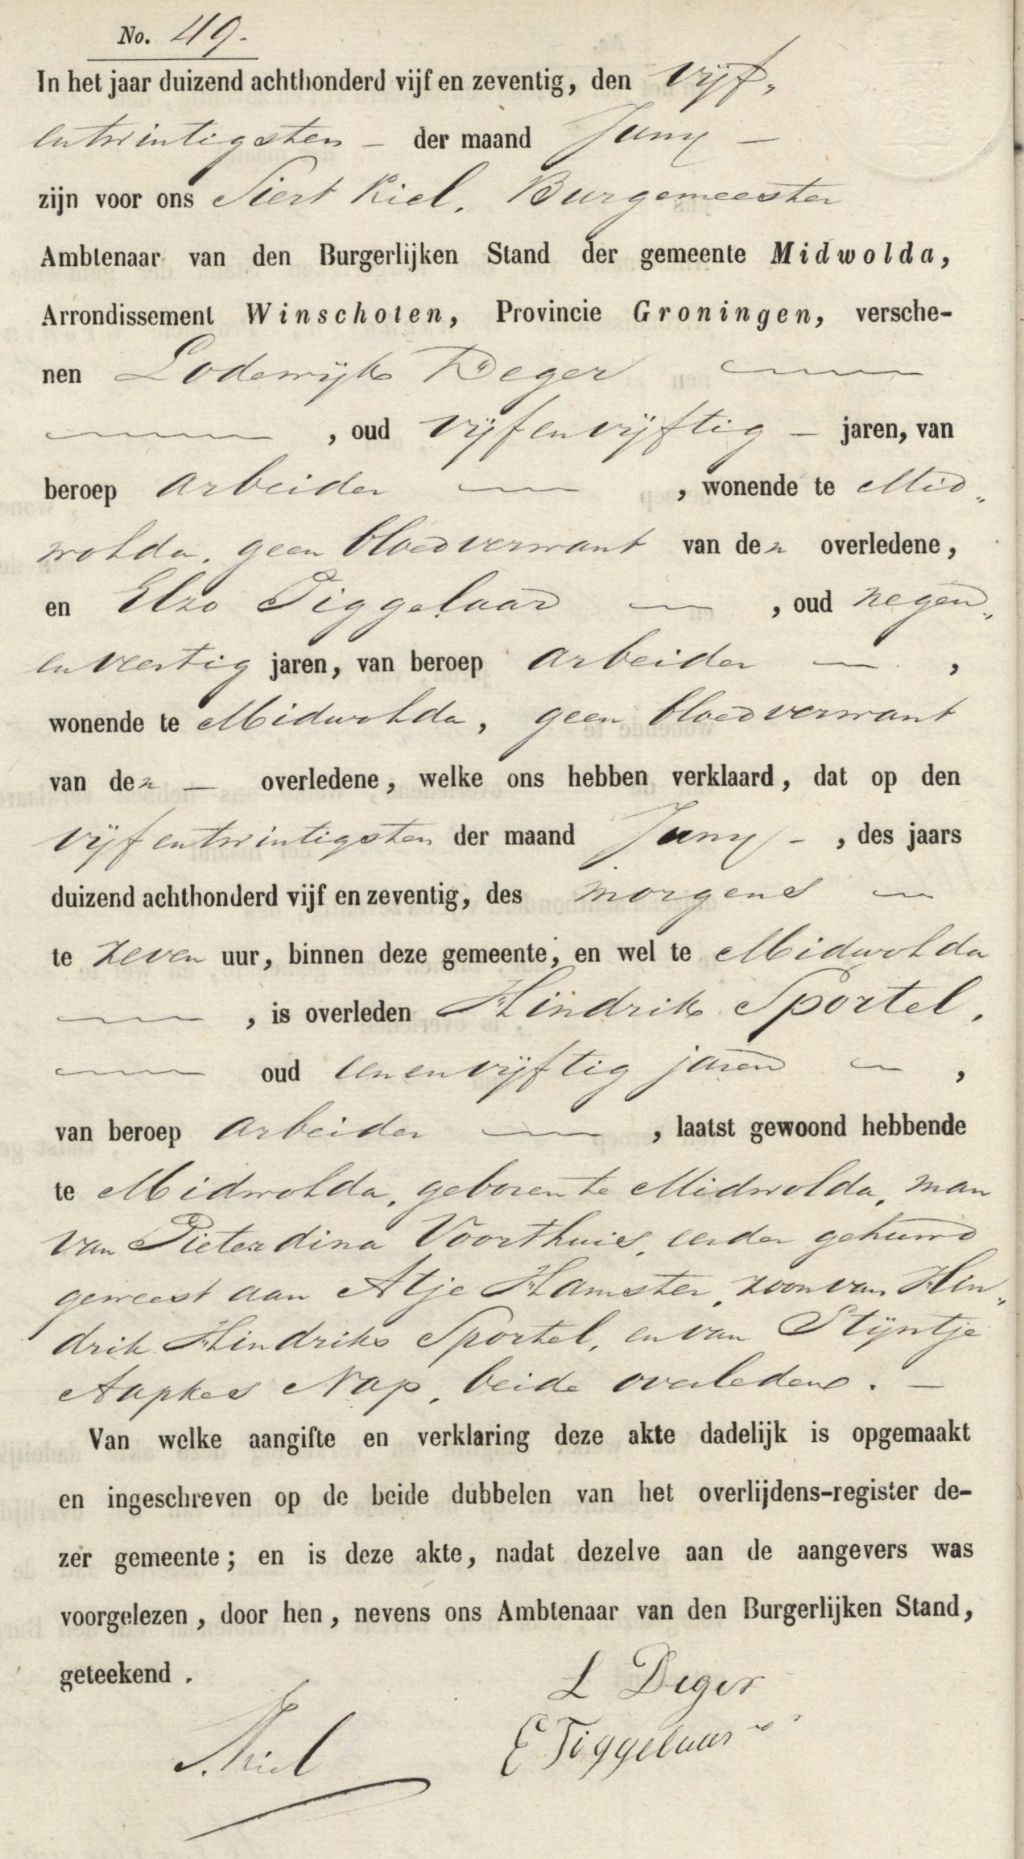 No. 49.
In het jaar duizend achthonderd vijf en zeventig, den vijf„
entwintigsten – der maand Juny –
zijn voor ons Siert Kiel, Burgemeester
Ambtenaar van den Burgerlijken Stand der gemeente Midwolda,
Arrondissement Winschoten, Provincie Groningen, versche-
nen Lodewijk Deger
, oud vijfenvijftig – jaren, van
beroep arbeider , wonende te Mid„
wolda, geen bloedverwant van den overledene,
en Elzo Tiggelaar , oud negen„
enveertig jaren, van beroep arbeider ,
wonende te Midwolda, geen bloedverwant
van den – overledene, welke ons hebben verklaard, dat op den
vijfentwintigsten der maand Juny – , des jaars
duizend achthonderd vijf en zeventig, des morgens
te zeven uur, binnen deze gemeente, en wel te Midwolda
, is overleden Hindrik Sportel,
oud eenenvijftig jaren ,
van beroep arbeider , laatst gewoond hebbende
te Midwolda, geboren te Midwolda, man
van Pieterdina Voorthuis, eerder gehuwd
geweest aan Atje Hamster, zoon van Hin„
drik Hindriks Sportel, en van Stijntje
Aapkes Nap, beide overledene. –
Van welke aangifte en verklaring deze akte dadelijk is opgemaakt
en ingeschreven op de beide dubbelen van het overlijdens-register de-
zer gemeente; en is deze akte, nadat dezelve aan de aangevers was
voorgelezen, door hen, nevens ons Ambtenaar van den Burgerlijken Stand,
geteekend.
L Deger
S. Kiel
E Tiggelaar